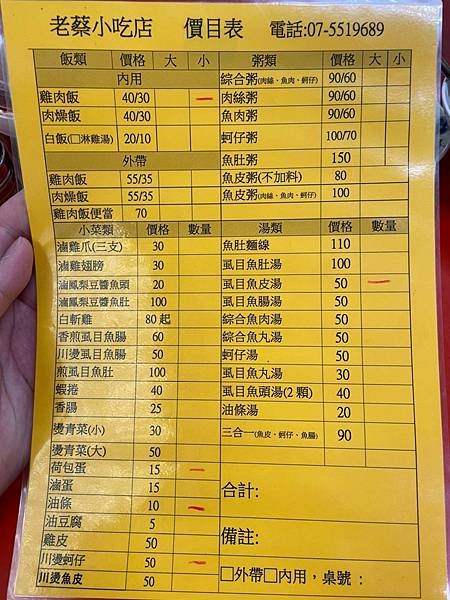 老蔡小吃店 價目表 電話:07-5519689
飯類 價格 大 小
內用
雞肉飯 40/30 一
肉燥飯 40/30
白飯(□淋雞湯) 20/10
外帶
雞肉飯 55/35
肉燥飯 55/35
雞肉飯便當 70
小菜類 價格 數量
滷雞爪(三支) 30
滷雞翅膀 30
滷鳳梨豆醬魚頭 20
滷鳳梨豆醬魚肚 100
白斬雞 80起
香煎虱目魚腸 60
川燙虱目魚腸 50
煎虱目魚肚 100
蝦捲 40
香腸 25
燙青菜(小) 30
燙青菜(大) 50
荷包蛋 15 一
滷蛋 15
油條 10 一
油豆腐 5
雞皮 50
川燙蚵仔 50 一
川燙魚皮 50
粥類 價格 大 小
綜合粥(肉絲、魚肉、蚵仔) 90/60
肉絲粥 90/60
魚肉粥 90/60
蚵仔粥 100/70
魚肚粥 150
魚皮粥(不加料) 80
魚皮粥(肉絲、魚肉、蚵仔) 100
湯類 價格 數量
魚肚麵線 110
虱目魚肚湯 100
虱目魚皮湯 50 一
虱目魚腸湯 50
綜合魚肉湯 50
綜合魚丸湯 50
蚵仔湯 50
虱目魚丸湯 30
虱目魚頭湯(2顆) 40
油條湯 20
三合一(魚皮、蚵仔、魚腸) 90
合計:
備註:
□外帶□內用，桌號：